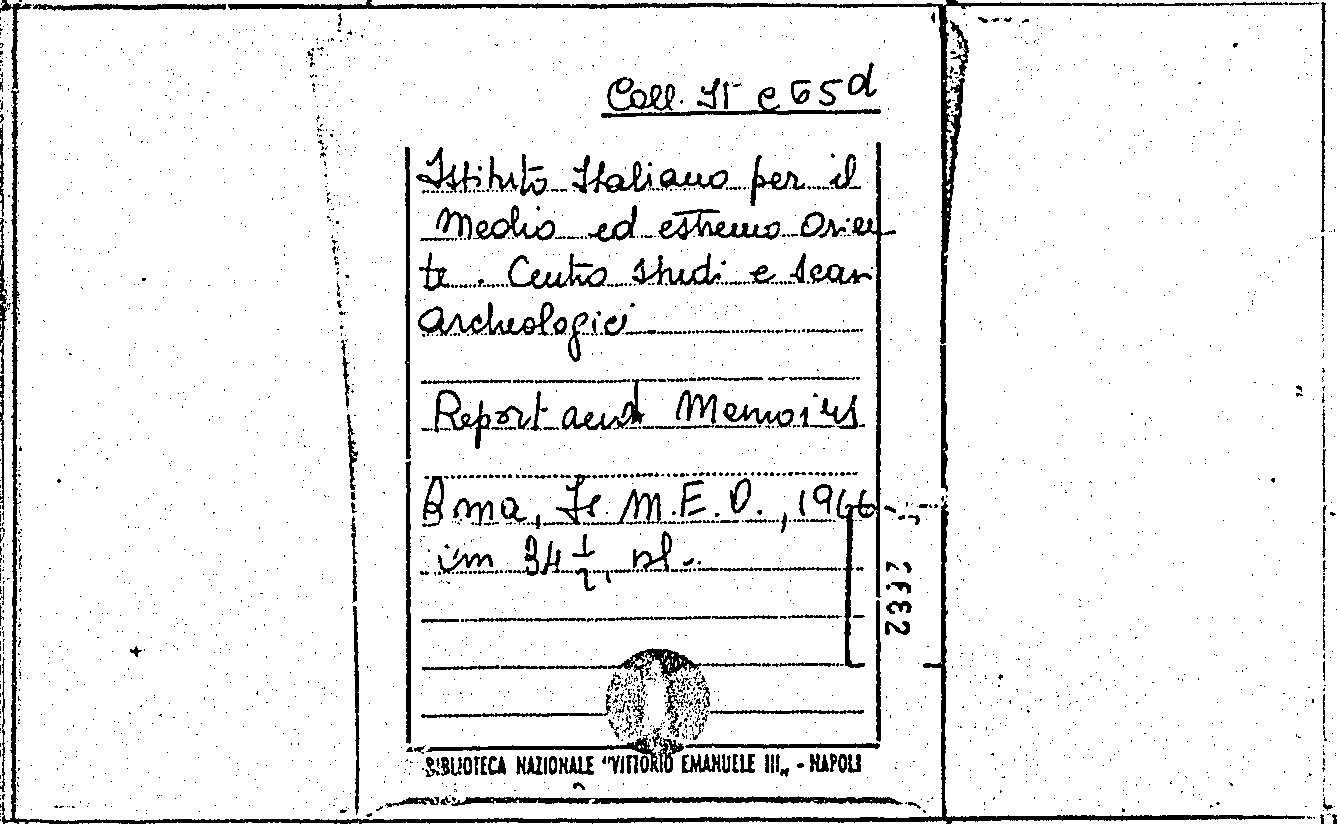 Coll. It c 65 d
Istituto Italiano per il
Medio ed estremo Orien
te. Centro studi e scavi
Archeologici
Report and Memoirs
Roma, Is. M.E.O., 1966
in 34 1/2, pl.
BIBLIOTECA NAZIONALE "VITTORIO EMANUELE III„ - NAPOLI